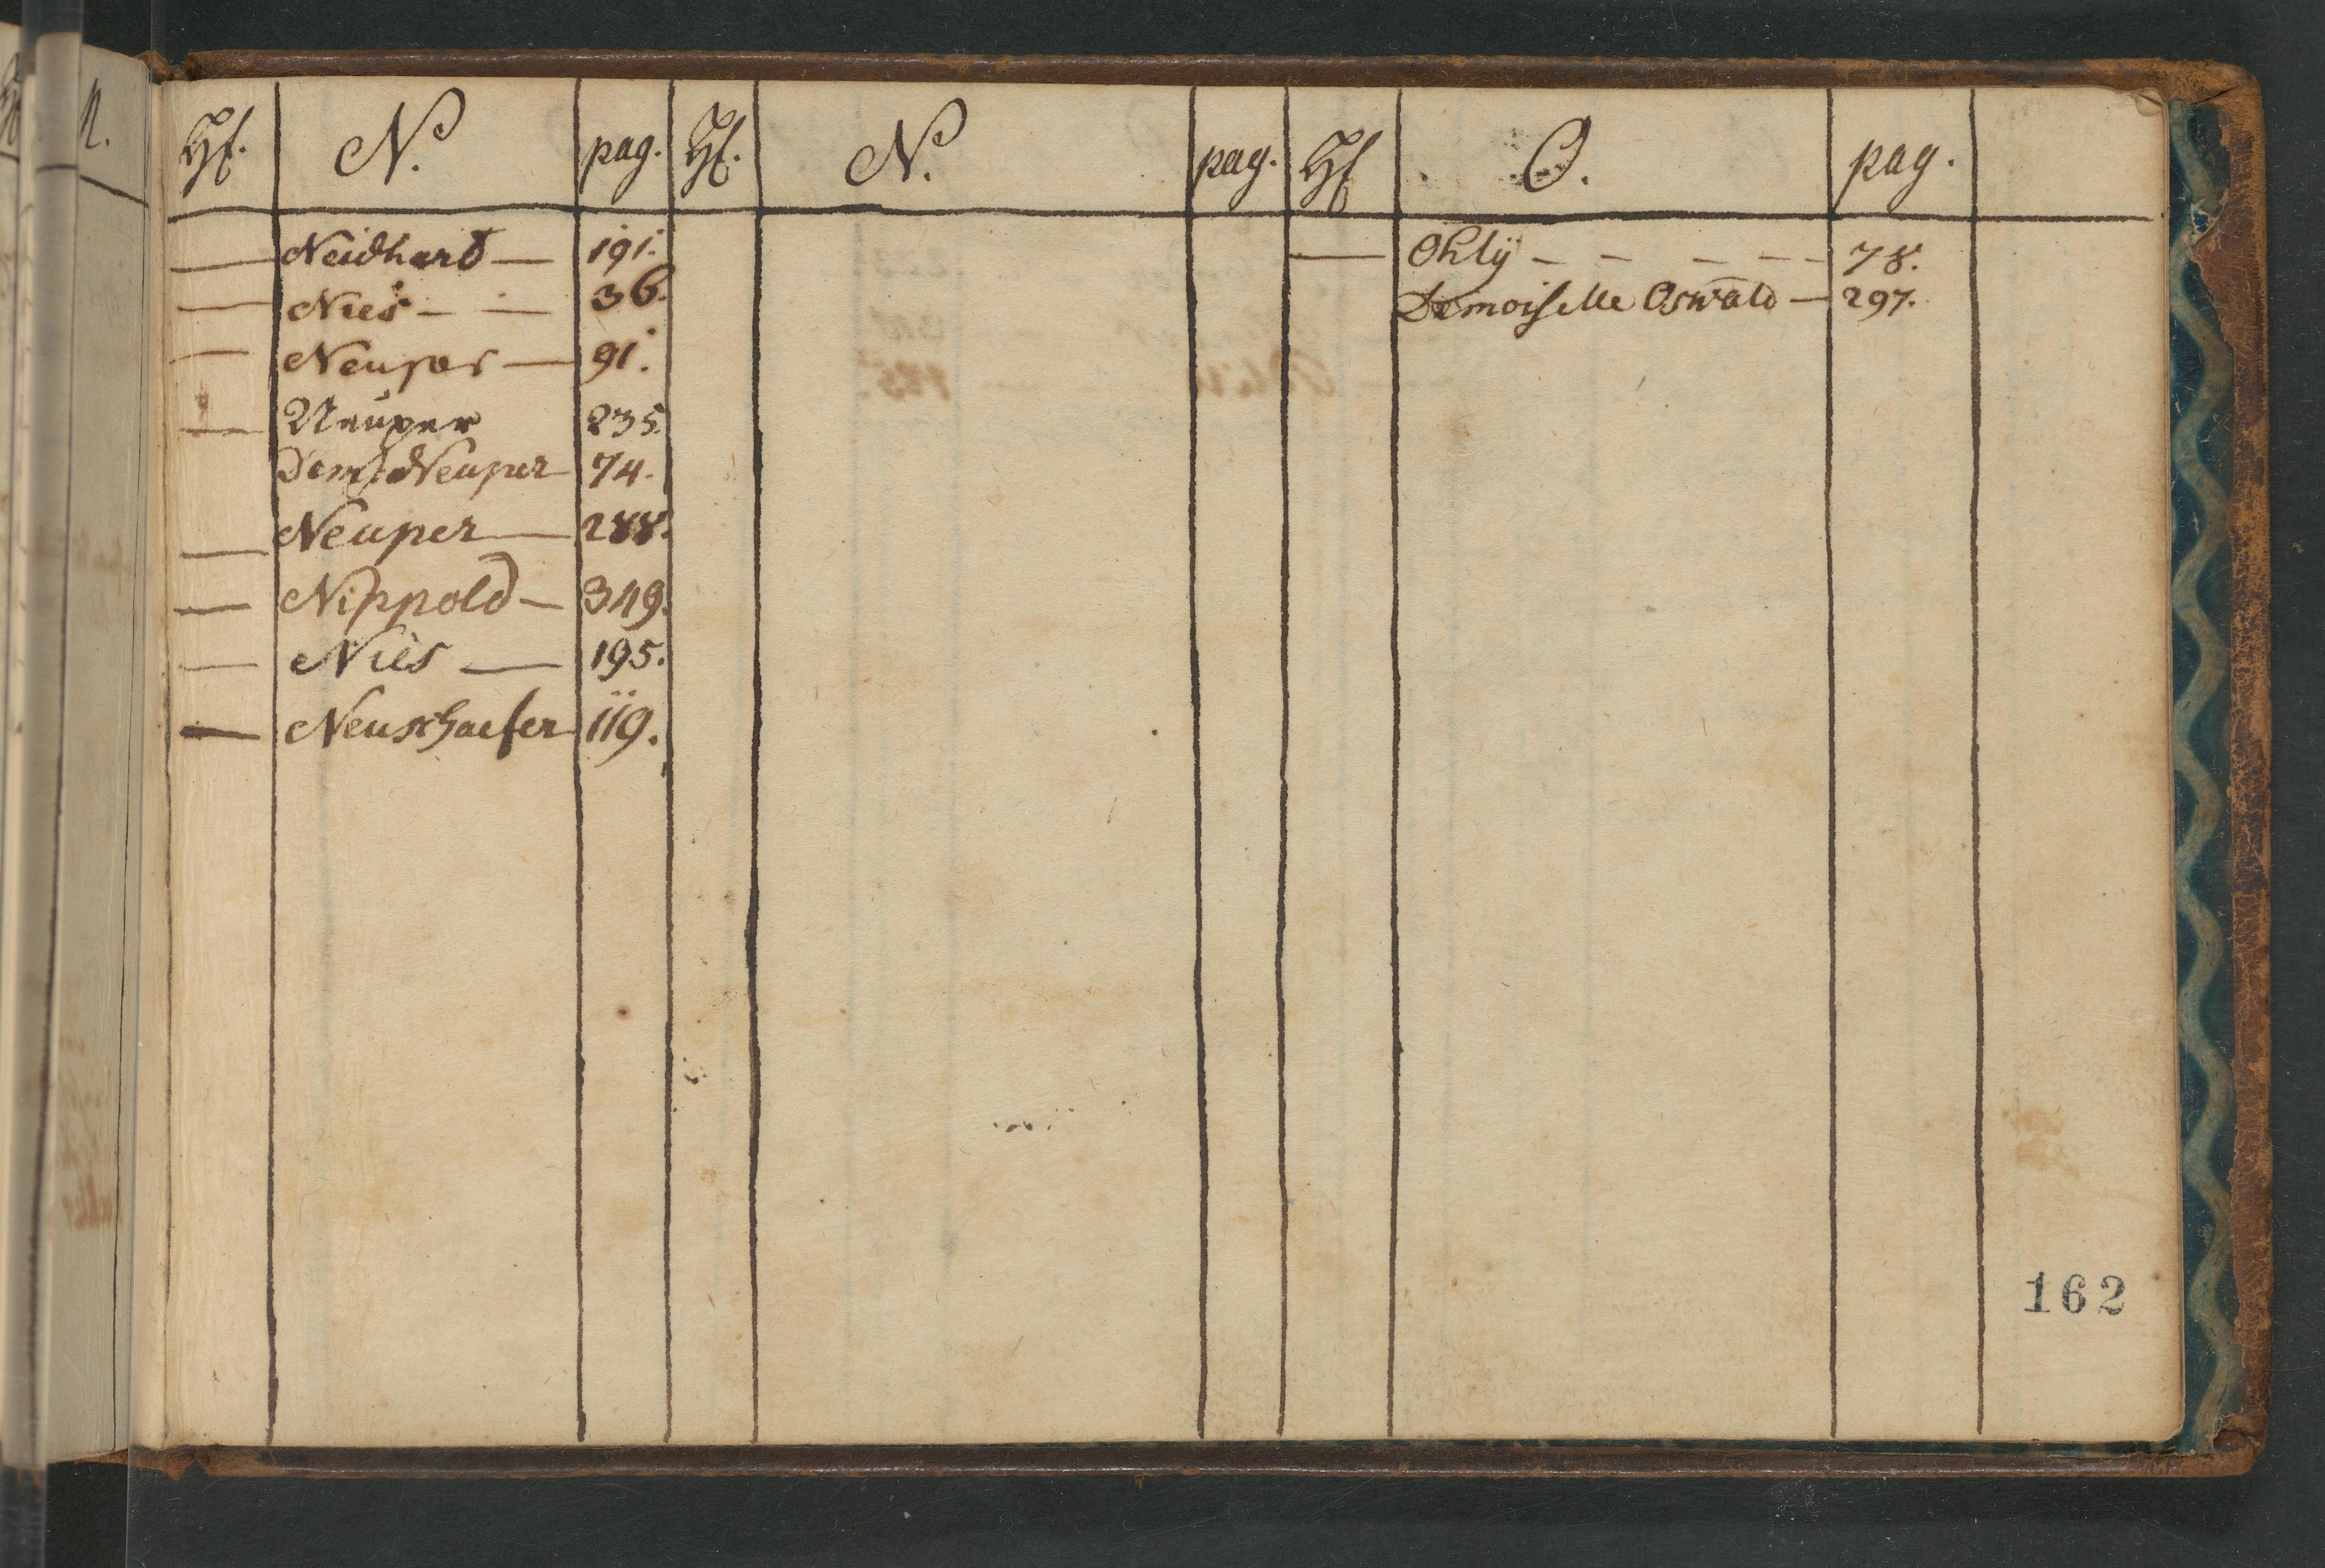 N.
Hℓ. N. pag. Hℓ. N. pag. Hℓ O. pag.
— Neidhard — 191.
— Nies - — 36.
— Neuper — 91.
— Neuper 235.
Dem. Neuper 74.
— Neuper — 288.
— Nippold — 349.
— Nies — 195.
— Neuschaefer 119.
— Ohlÿ - - - - - 78.
Demoiselle Oswald — 297.
162